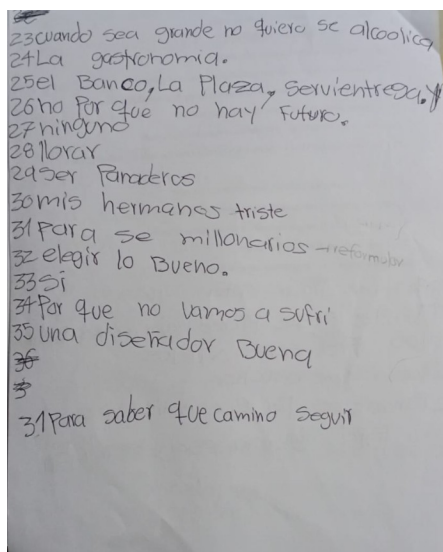 23 cuando sea grande no quiero se alcoolica
24 La gastronomia.
25 el Banco, La Plaza, Servientrega. y
26 no Por que no hay Futuro.
27 ninguno
28 llorar
29 Ser Panaderos
30 mis hermanos triste
31 Para se millonarios - reformular
32 elegir lo Bueno.
33 Si
34 Por que no vamos a sufri
35 una diseñador Buena
31 Para saber que camino Seguir